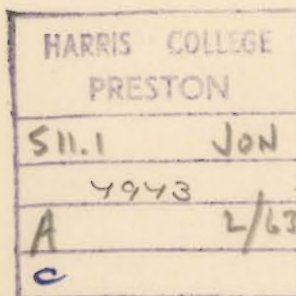 HARRIS COLLEGE
PRESTON
511.1 JON
4943
A 2/63
C